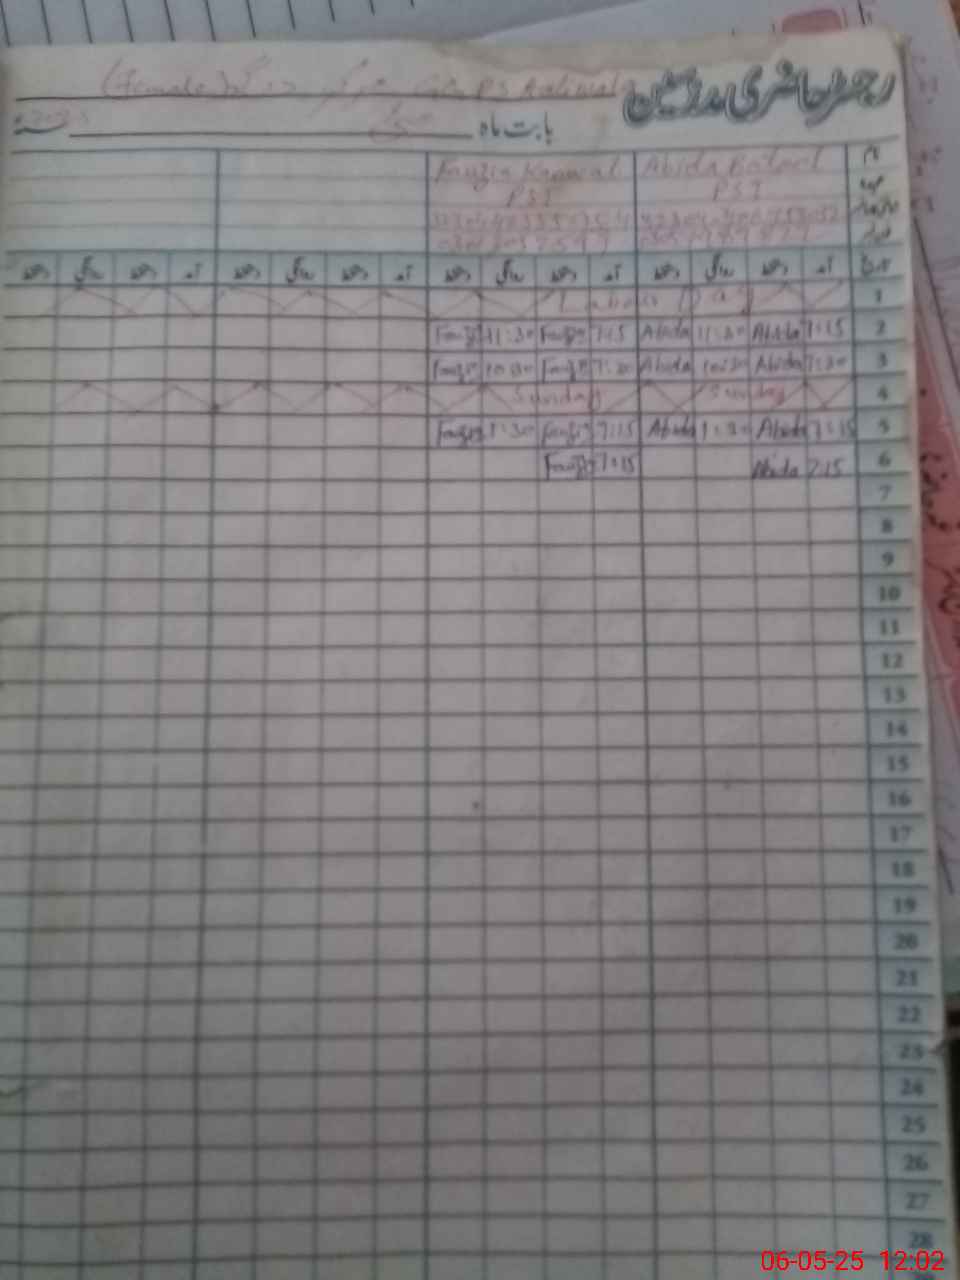 رجسٹر حاضری مدرسین
(Female) GPS
بابت ماہ سنہ
نام Abida Batool Fauzia Kanwal
عہدہ PST PST
تاریخ آمد دستخط روانگی دستخط آمد دستخط روانگی دستخط آمد دستخط روانگی دستخط آمد دستخط روانگی دستخط
1 Labour Day
2 7:15 Abida 11:30 Abida 7:15 Fauzia 11:30 Fauzia
3 7:30 Abida 10:30 Abida 7:30 Fauzia 10:30 Fauzia
4 Sunday Sunday
5 7:15 Abida 1:30 Abida 7:15 Fauzia 1:30 Fauzia
6 7:15 Abida 7:15 Fauzia
7
8
9
10
11
12
13
14
15
16
17
18
19
20
21
22
23
24
25
26
27
28
06-05-25 12:02